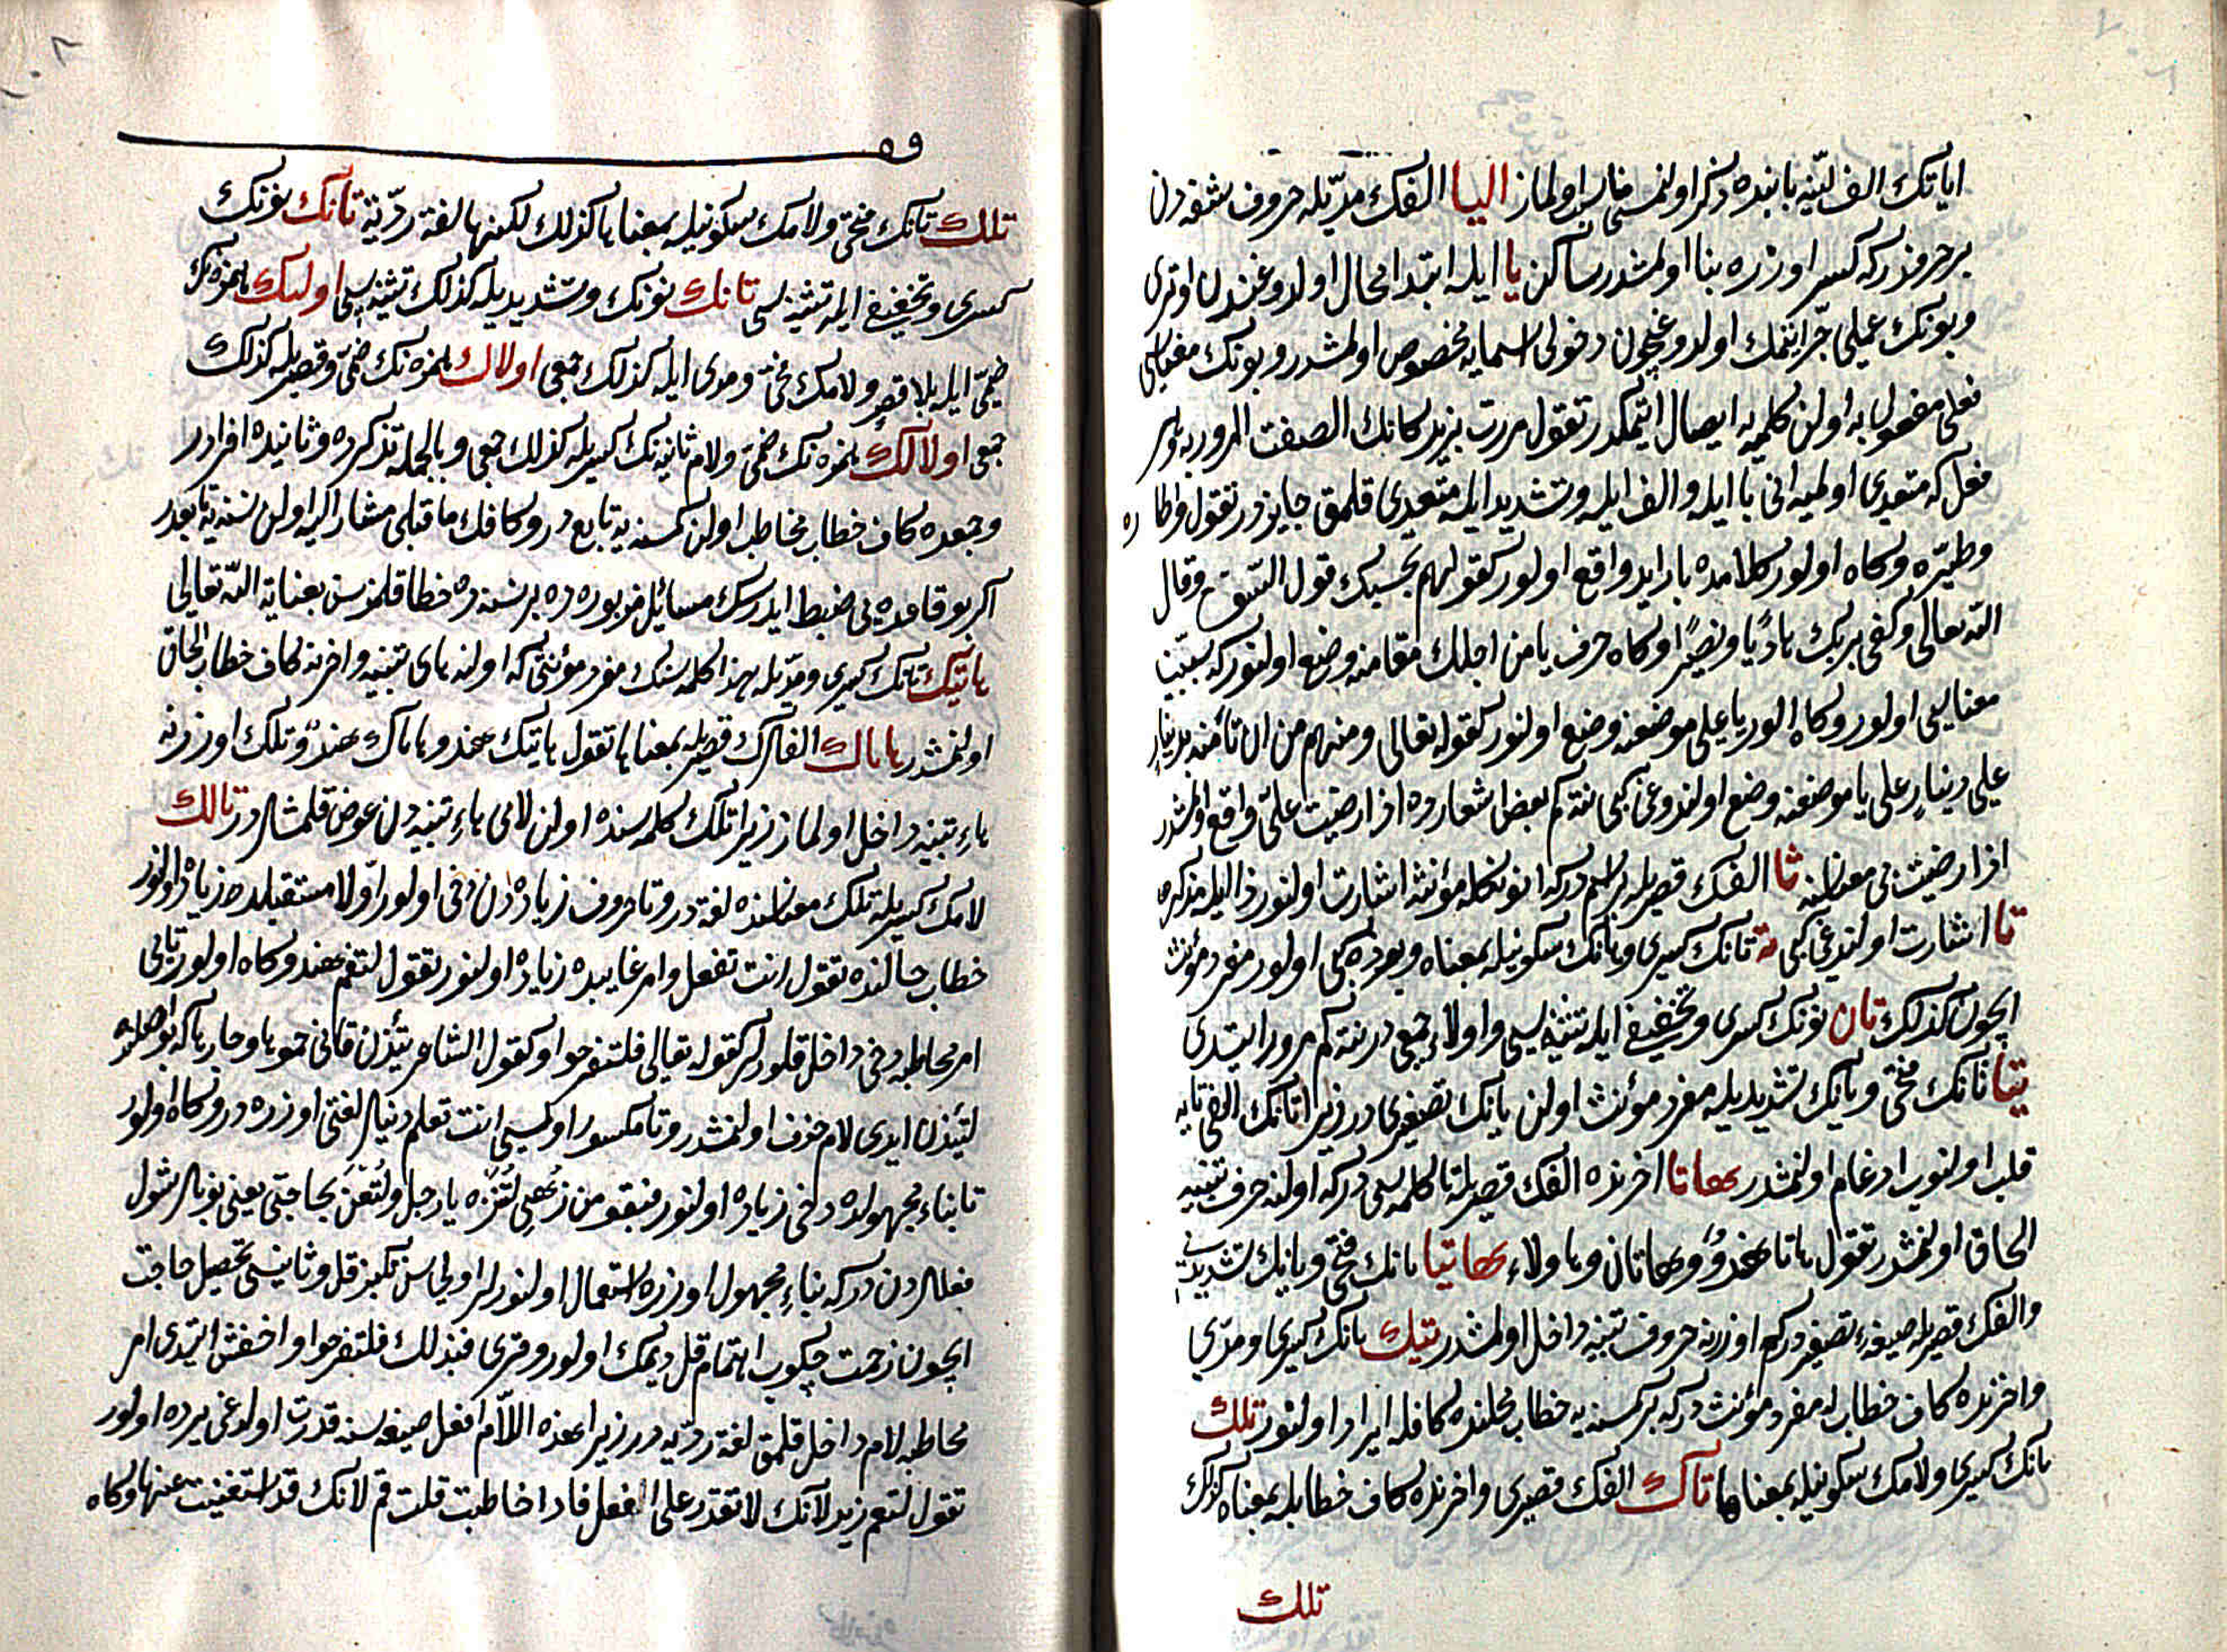 اياتك الف لينه بابنده ذكر اولنمسى مناسب اولماز اليا الفك مديله حروف شفه دن
بر حرفدركه كسر اوزره بنا اولمشدر ساكن يا ايله ابتدا محال اولدوغندن اوترى
وبونك عملى جر ايتمك اولدوغيچون دخولى اسمايه مخصوص اولمشدر وبونك معناسى
فعلى مفعول به اولن كلمه يه ايصال ايتمكدر تقول مررت بزيد كانك الصقت المرور به وهر
فعل كه متعدى اولميه انى با ايله والف ايله وتشديد ايله متعدى قلمق جايزدر تقول طار
به واطاره
وطيره وكاه اولور كلامده با زايد واقع اولور كقولهم بحسبك قول السوء وقال
الله تعالى وكفى بربك هاديا ونصيرا وكاه حرف با من اجلك مقامنه وضع اولنور كه سببيت
معناسى اولور وكاه اولور با على موضعنه وضع اولنور كقوله تعالى ومنهم من ان تأمنه بدينار
على دينار على با موضعنه وضع اولندوغى كبى نته كم بعض اشعارده اذا رضيت على واقع اولمشدر
اذا رضيت بى معناسنه تا الفك قصريله بر اسمدركه انونكله مؤنثه اشارت اولنور ذا ايله مذكره
تا اشارت اولندوغى كبى ته تانك كسرى وهانك سكونيله بمعناه وبو ده كبى اولور مفرد مؤنث
ايچون كذلك تان نونك كسرى وتخفيفى ايله تثنيه سى واولاء جمعى در نته كم مرور ايتدى
تيا تانك فتحى ويانك تشديديله مفرد مؤنث اولن يانك تصغيرى در زيرا تانك الفى يايه
قلب اولنوب ادغام اولنمشدر هاتا اخرنده الفك قصريله تا كلمه سى دركه اولنه حرف تنبيه
الحاق اولنمشدر تقول هاتا هند وهاتان وهاولاء هاتيا تانك فتحى ويانك تشديدى
والفك قصريله صيغهء تصغيردركه اوزرينه حروف تنبيه داخل اولمشدر تيك تانك كسرى ومدى
واخرنده كاف خطاب له مفرد مؤنث دركه بر كمسنه يه خطاب محلنده كافله ايراد اولنور تلك
تانك كسرى ولامك سكونيله بمعناها تاك الفك قصرى واخرنده كاف خطابيله بمعناه كذلك
تلك
تلك تانك فتحى ولامك سكونيله بمعناها كذلك لكنها لغة رديئة تانك نونك
كسرى وتخفيفى ايله تثنيه سى تانك نونك وتشديديله كذلك تثنيه سى اولئك همزه نك
ضمى ايله بلا قصر ولامك فتحى ومدى ايله كذلك جمعى اولاك همزه نك ضمى وقصريله كذلك
جمعى اولالك همزه نك ضمى ولام ثانيه نك كسريله كذلك جمعى وبالجمله تذكرده وتأنيده افراددر
وجمعده كاف خطاب مخاطب اولن كمسنه يه تابع در وكافك ماقبلى مشار اليه اولن نسنه يه تابعدر
اكر بو قاعده يى ضبط ايدرسك مسائل مزبوره ده بر نسنه ده خطا قلمزسن بعناية الله تعالى
هاتيك تانك كسرى ومديله بهذا كلمه سنك مفرد مؤنثى كه اولنه هاى تنبيه واخرنه كاف خطاب الحاق
اولنمشدر هاتاك الفلرك قصريله بمعناها تقول هاتيك هند وهاتاك هند وتلك اوزرنه
هاء تنبيه داخل اولماز زيرا تلك كلمه سنده اولن لامى هاء تنبيه دن عوض قلمشلردر تالك
لامك كسريله تلك معناسنده لغة در وتا حروف زياده دن دخى اولور اولا مستقبلده زياده اولنور
خطاب حالنده تقول انت تفعل وامر غايبده زياده اولنور تقول لتقم هند وكاه اولور تايى
امر مخاطبه دخى داخل قلورلر كقوله تعالى فلتفرحوا وكقول الشاعر تئذن فانى حموها وجارها كه بو اصلنده
لتئذن ايدى لام حذف اولنمشدر وتا مكسور اولمسى انت تعلم دينلر لغتى اوزره در وكاه اولور
تا بناء مجهولده دخى زياده اولنور فتقو من زهى لتزه يا رجل ولتعن بحاجتى يعنى بونلر شول
فعللردن دركه بناء مجهول اوزره استعمال اولنورلر اولى سن تكبر قل وثانيسى تحصيل حاجت
ايچون زحمت چكوب اهتمام قل ديمك اولور وقرى فبذلك فلتفرحوا واخفش ايتدى امر
مخاطبه لام داخل قلمق لغة رديه در زيرا هذه اللام افعل صيغه سنه قدرت اولدوغى يرده اولور
تقول لتقم زيد لانك لا تقدر على افعل فاذا خاطبت قلت قم لانك قد استغنيت عنها وكاه